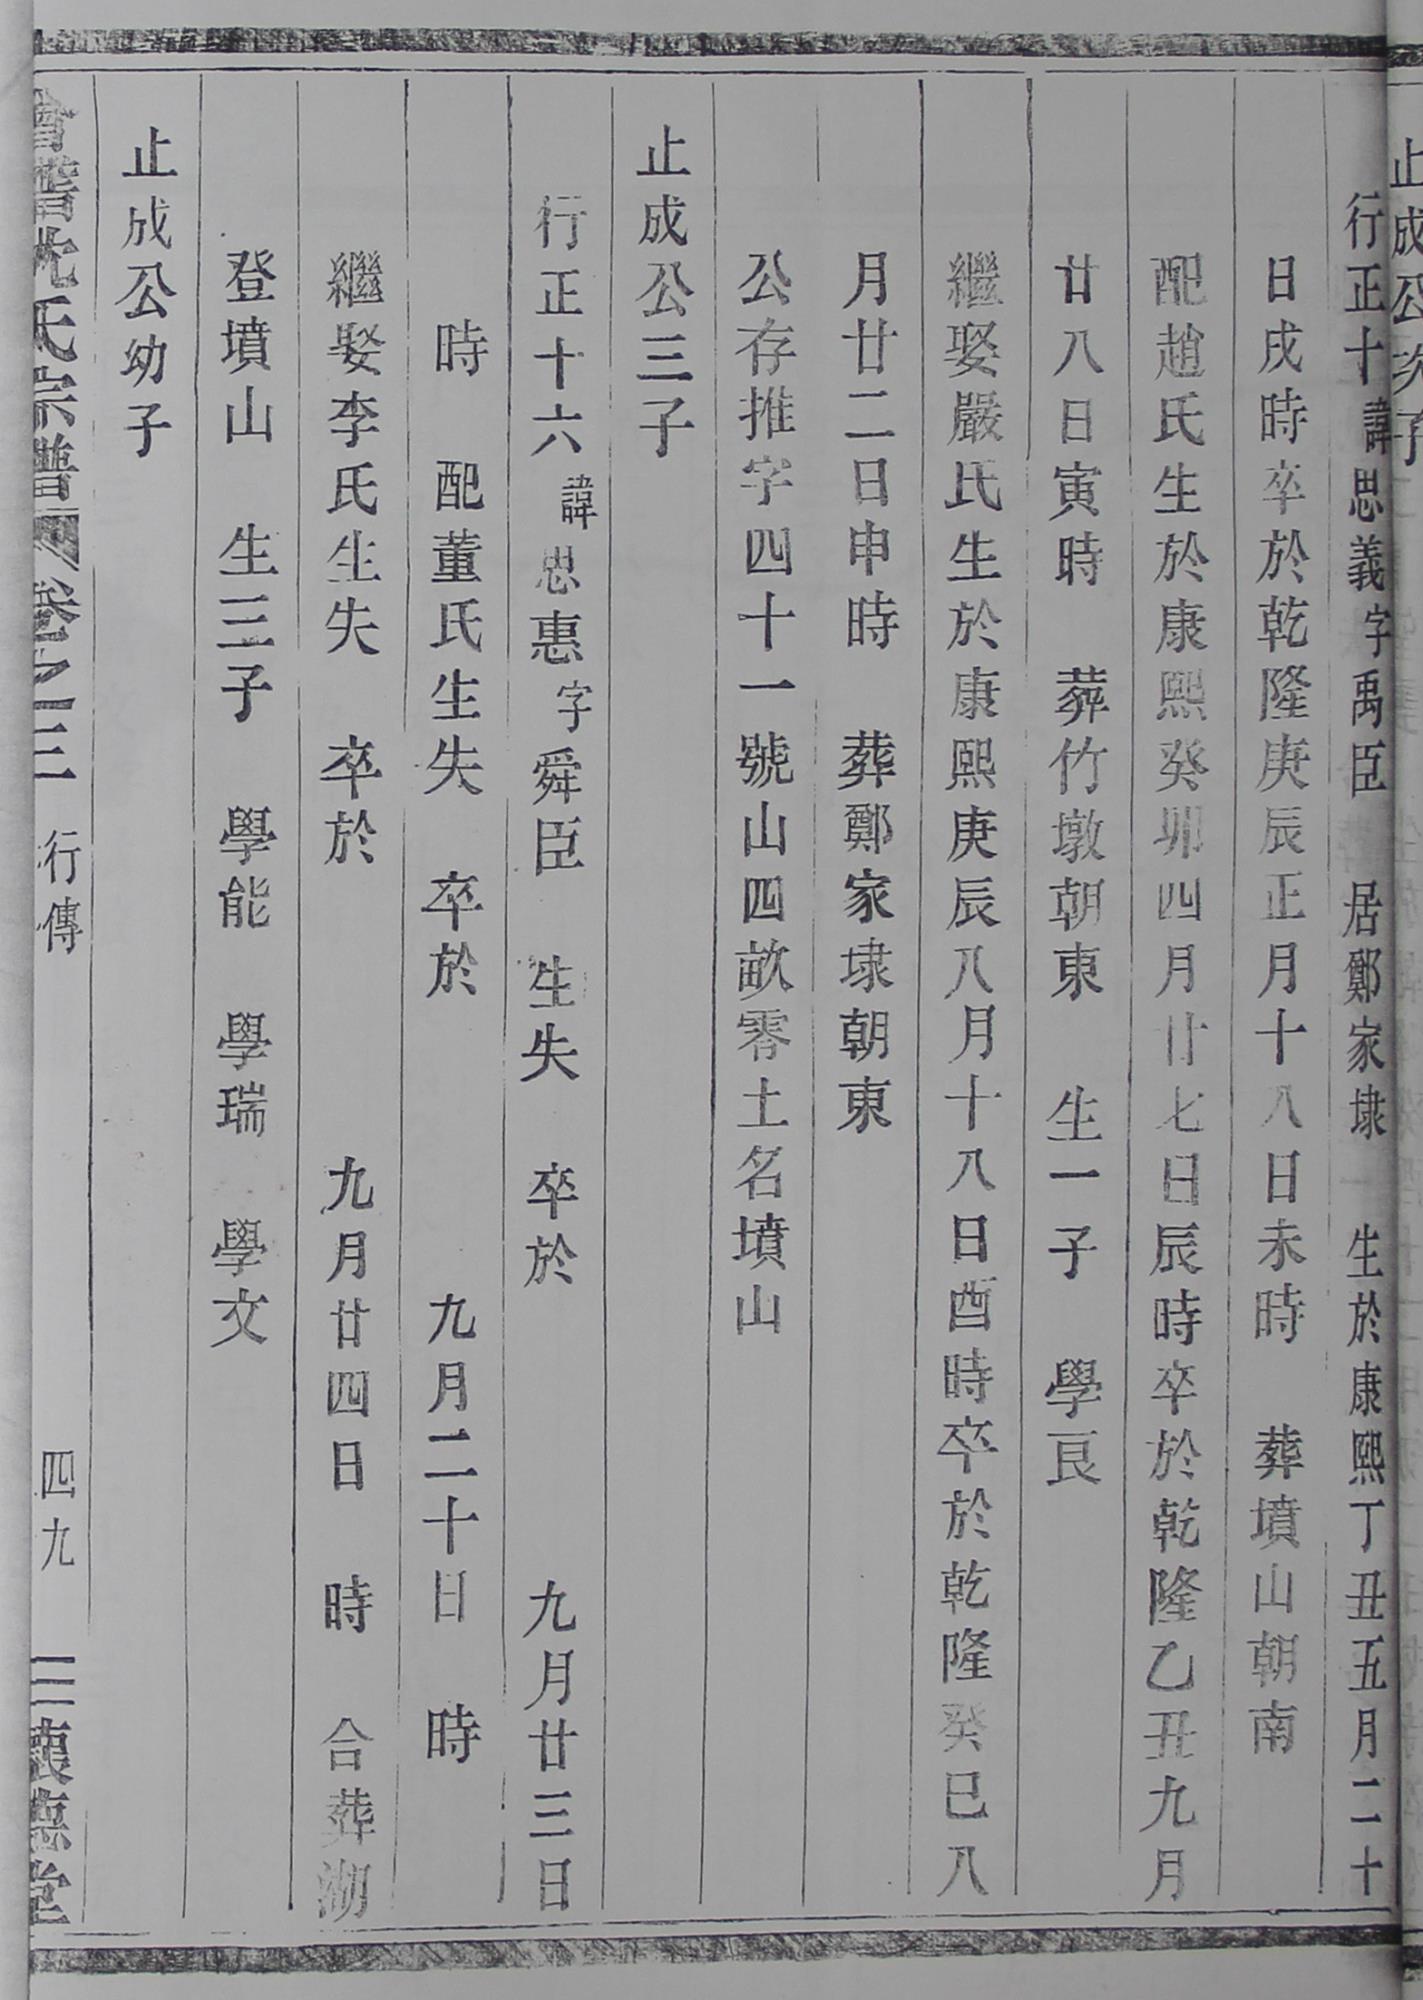 止成公次子
行正十諱思義字禹臣　居鄭家埭　生於康熙丁丑五月二十
日戌時卒於乾隆庚辰正月十八日未時　葬墳山朝南
配趙氏生於康熙癸卯四月廿七日辰時卒於乾隆乙丑九月
廿八日寅時　葬竹墩朝東　生一子　學良
繼娶嚴氏生於康熙庚辰八月十八日酉時卒於乾隆癸巳八
月廿二日申時　葬鄭家埭朝東
公存推字四十一號山四畝零土名墳山
止成公三子
行正十六諱思惠字舜臣　生失　卒於　九月廿三日
時　配董氏生失　卒於　九月二十日　時
繼娶李氏生失　卒於　九月廿四日　時　合葬湖
登墳山　生三子　學能　學瑞　學文
止成公幼子
會稽沈氏宗譜　卷之三　行傳　四九　三懷德堂